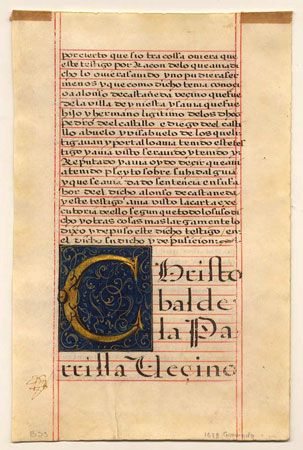 por cierto que si otra cossa oviera que
este testigo por Racon de lo que avia di
cho lo oviera savido y no pudiera ser
menos y que como dicho tenia conoci
o a alonso de castañeda veçino que fue
de la villa de yniesta y savia que fue
hijo y hermano legitimo de los dhos
pedro del castillo e diego del casti
llo abuelo y visabuelo de los que li
tigavan y por tal lo avia tenido este tes
tigo y avia visto ser avido y tenido y
Reputado y avia oydo deçir que avi
a tenido pleyto sobre su hidalguia
y que se avia dado sentencia en su fa
bor de el dicho alonso de castaneda
y este testigo avia visto la carta exe
cutoria de ello segun que todo lo suso di
cho y otras cosas mas largamente lo
dixo y depuso este dicho testigo en
el dicho su dicho y deposicion
Christo
bal de
la Pa
rrilla Veçino
B33